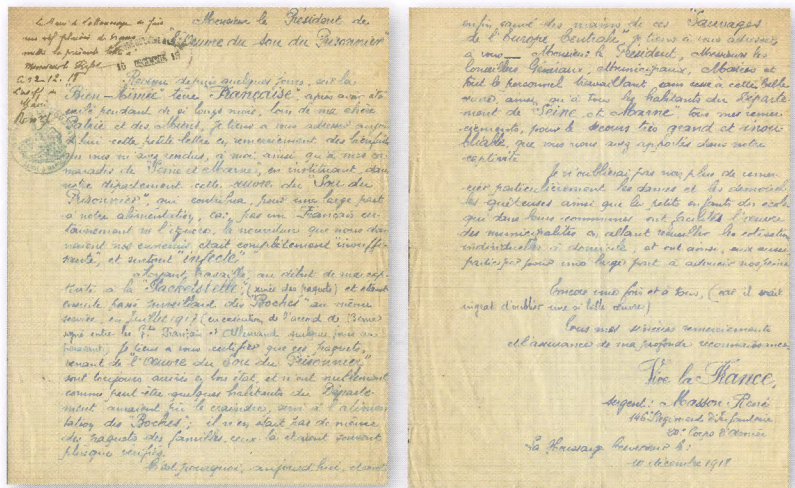 Monsieur le Président de
"l'Œuvre du sou du Prisonnier"
Le Maire de la Houssaye
la présente lettre à
Monsieur le Préfet
22-12-18
Le Maire
Revenu depuis quelques jours, sur la
"Bien-Aimée" terre "Française" après avoir été
exilé pendant de si longs mois, loin de ma chère
Patrie et des Miens, je tiens à vous adresser aujour
d'hui cette petite lettre en remerciement des bienfaits
que vous m'avez rendus, à moi, ainsi qu'à mes ca-
marades de Seine et Marne, en instituant, dans
notre département cette œuvre du "Sou du
Prisonnier", qui contribua, pour une large part
à notre alimentation, car pas un Français cer-
tainement ne l'ignore, la nourriture que nous don-
naient nos ennemis était complètement insuffi-
sante, et surtout "infecte".
Ayant travaillé, au début de ma cap-
tivité à la "Packetstelle" (arrivée des paquets) et étant
ensuite passé surveillant des "Boches" au même
service, en Juillet 1917 (en exécution de l'accord de Berne
signé entre les Gts Français et Allemand quelques jours au-
paravant) Je tiens à vous certifier que ces paquets,
venant de "l'Œuvre du Sou du Prisonnier"
sont toujours arrivés en bon état, et n'ont nullement
comme peut-être quelques habitants du Départe-
ment auraient pu le craindre, servi à l'alimen-
tation des "Boches"; il n'en était pas de même
des paquets des familles, ceux-là étaient souvent
plus que vérifiés.
C'est pourquoi, aujourd'hui, étant
enfin sauvé des mains de ces "Sauvages
de l'Europe Centrale", je tiens à vous adresser
à vous — Monsieur le Président, Messieurs les
Conseillers Généraux, Municipaux, Maires et
tout le personnel travaillant sans cesse à cette belle
œuvre, ainsi qu'à tous les habitants du Départe-
ment de "Seine et Marne", tous mes remer-
ciements, pour le secours très grand et inou-
bliable, que vous nous avez apporté dans notre
captivité.
Je n'oublierai pas non plus de remer-
cier particulièrement les dames et les demoiselles
quêteuses ainsi que les petits enfants des écoles
qui dans leurs communes ont facilité l'œuvre
des municipalités en allant recueillir les cotisations
individuelles à domicile, et ont ainsi, eux aussi
participé pour une large part à adoucir nos peines
Encore une fois et à tous, (car il serait
ingrat d'oublier une si belle œuvre)
Tous mes sincères remerciements
et l'assurance de ma profonde reconnaissance
Vive la France,
sergent: Masson René
146e Régiment d'Infanterie
20e Corps d'Armée
La Houssaye le:
10 décembre 1918